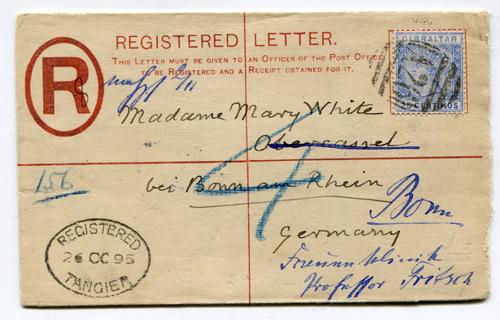 REGISTERED LETTER.
THIS LETTER MUST BE GIVEN TO AN OFFICER OF THE POST OFFICE
TO BE REGISTERED AND A RECEIPT OBTAINED FOR IT.
R
GIBRALTAR
CENTIMOS
Madame Mary White
Obercassel
156
bei Bonn am Rhein
Bonn
Germany
REGISTERED
26 OC 95
TANGIER
Frauenklinik
Professor Fritsch